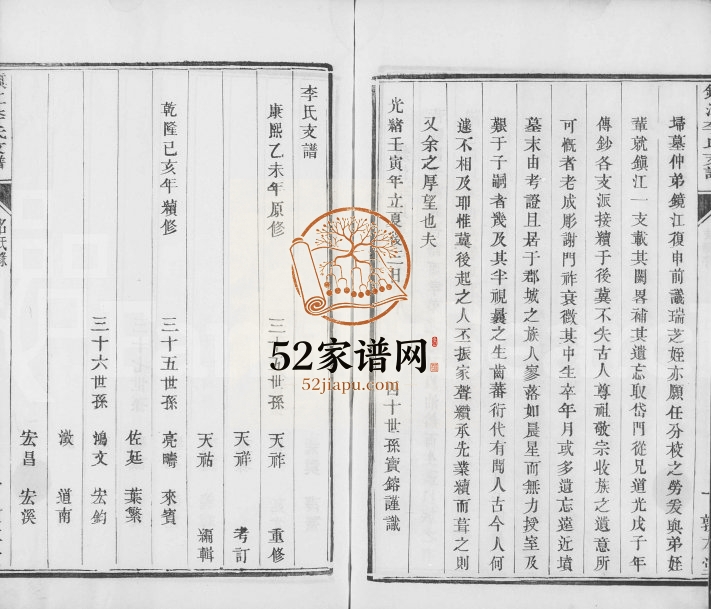 掃墓仲弟鏡江復申前議瑞芝姪亦願任分校之勞爰與弟姪
輩就鎭江一支載其闕畧補其遺忘取岱門從兄道光戊子年
傳鈔各支派接續于後冀不失古人尊祖敬宗收族之遺意所
可慨者老成彫謝門祚衰微其中生卒年月或多遺忘遠近墳
墓末由考證且居于郡城之族人寥落如晨星而無力授室及
艱于子嗣者幾及其半視曩之生齒蕃衍代有聞人古今人何
遽不相及耶惟冀後起之人丕振家聲纘承先業續而葺之則
又余之厚望也夫
光緒壬寅年立夏後二日
四十世孫寳鎔謹識
李氏支譜
康熙乙未年原修
天祥 重修
天祥 考訂
天祜 編輯
乾隆己亥年續修
三十五世孫 亮疇 來賓
佐廷 葉繁
三十六世孫 鴻文 宏鈞
澂 道南
宏昌 宏溪
52家谱网
52jiapu.com